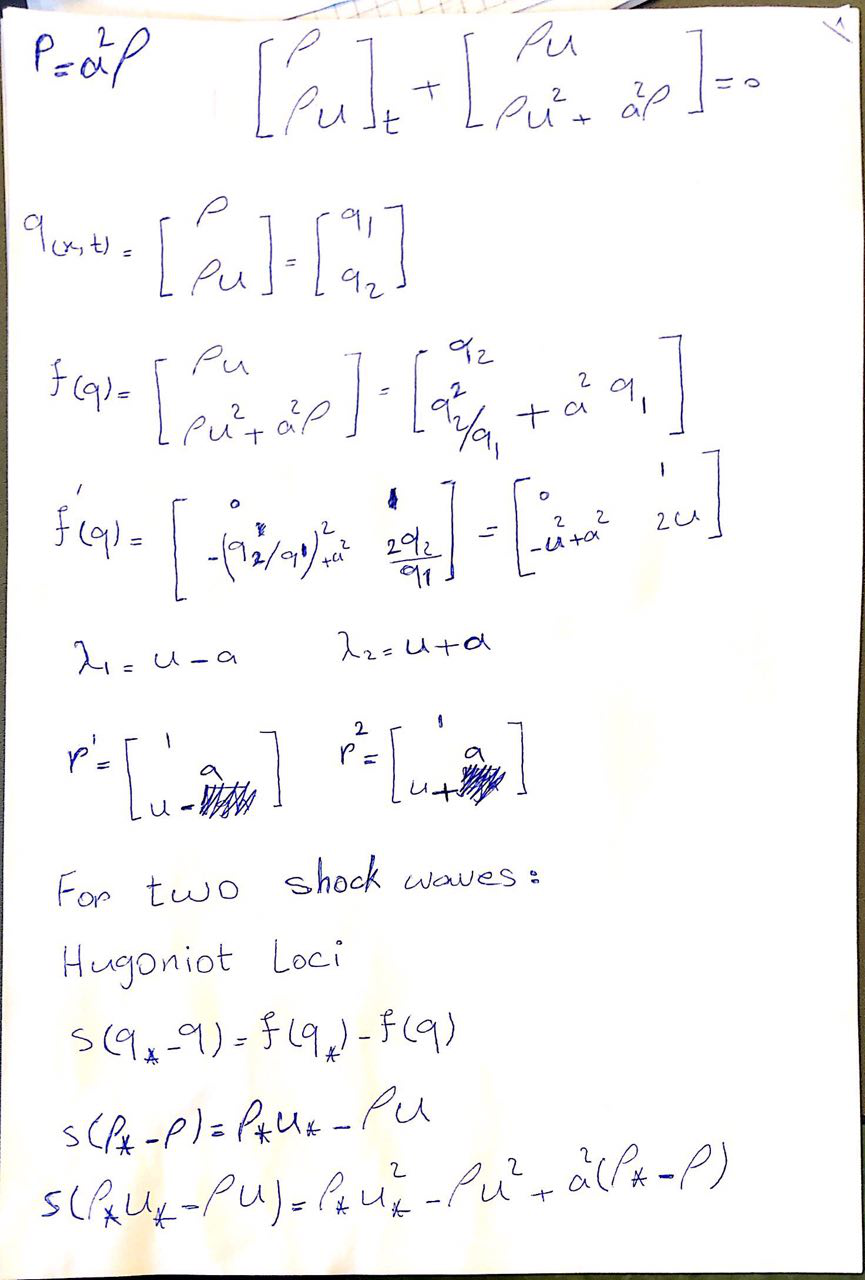 P=a²ρ [ρ ρu]_t + [ρu ρu²+a²ρ]=0
q(x,t)=[ρ ρu]=[q₁ q₂]
f(q)=[ρu ρu²+a²ρ]=[q₂ q₂²/q₁+a²q₁]
f'(q)=[0 1 -(q₂/q₁)²+a² 2q₂/q₁]=[0 1 -u²+a² 2u]
λ₁=u-a λ₂=u+a
r¹=[1 u-a] r²=[1 u+a]
For two shock waves:
Hugoniot Loci
s(q*-q)=f(q*)-f(q)
s(ρ*-ρ)=ρ*u*-ρu
s(ρ*u*-ρu)=ρ*u*²-ρu²+a²(ρ*-ρ)